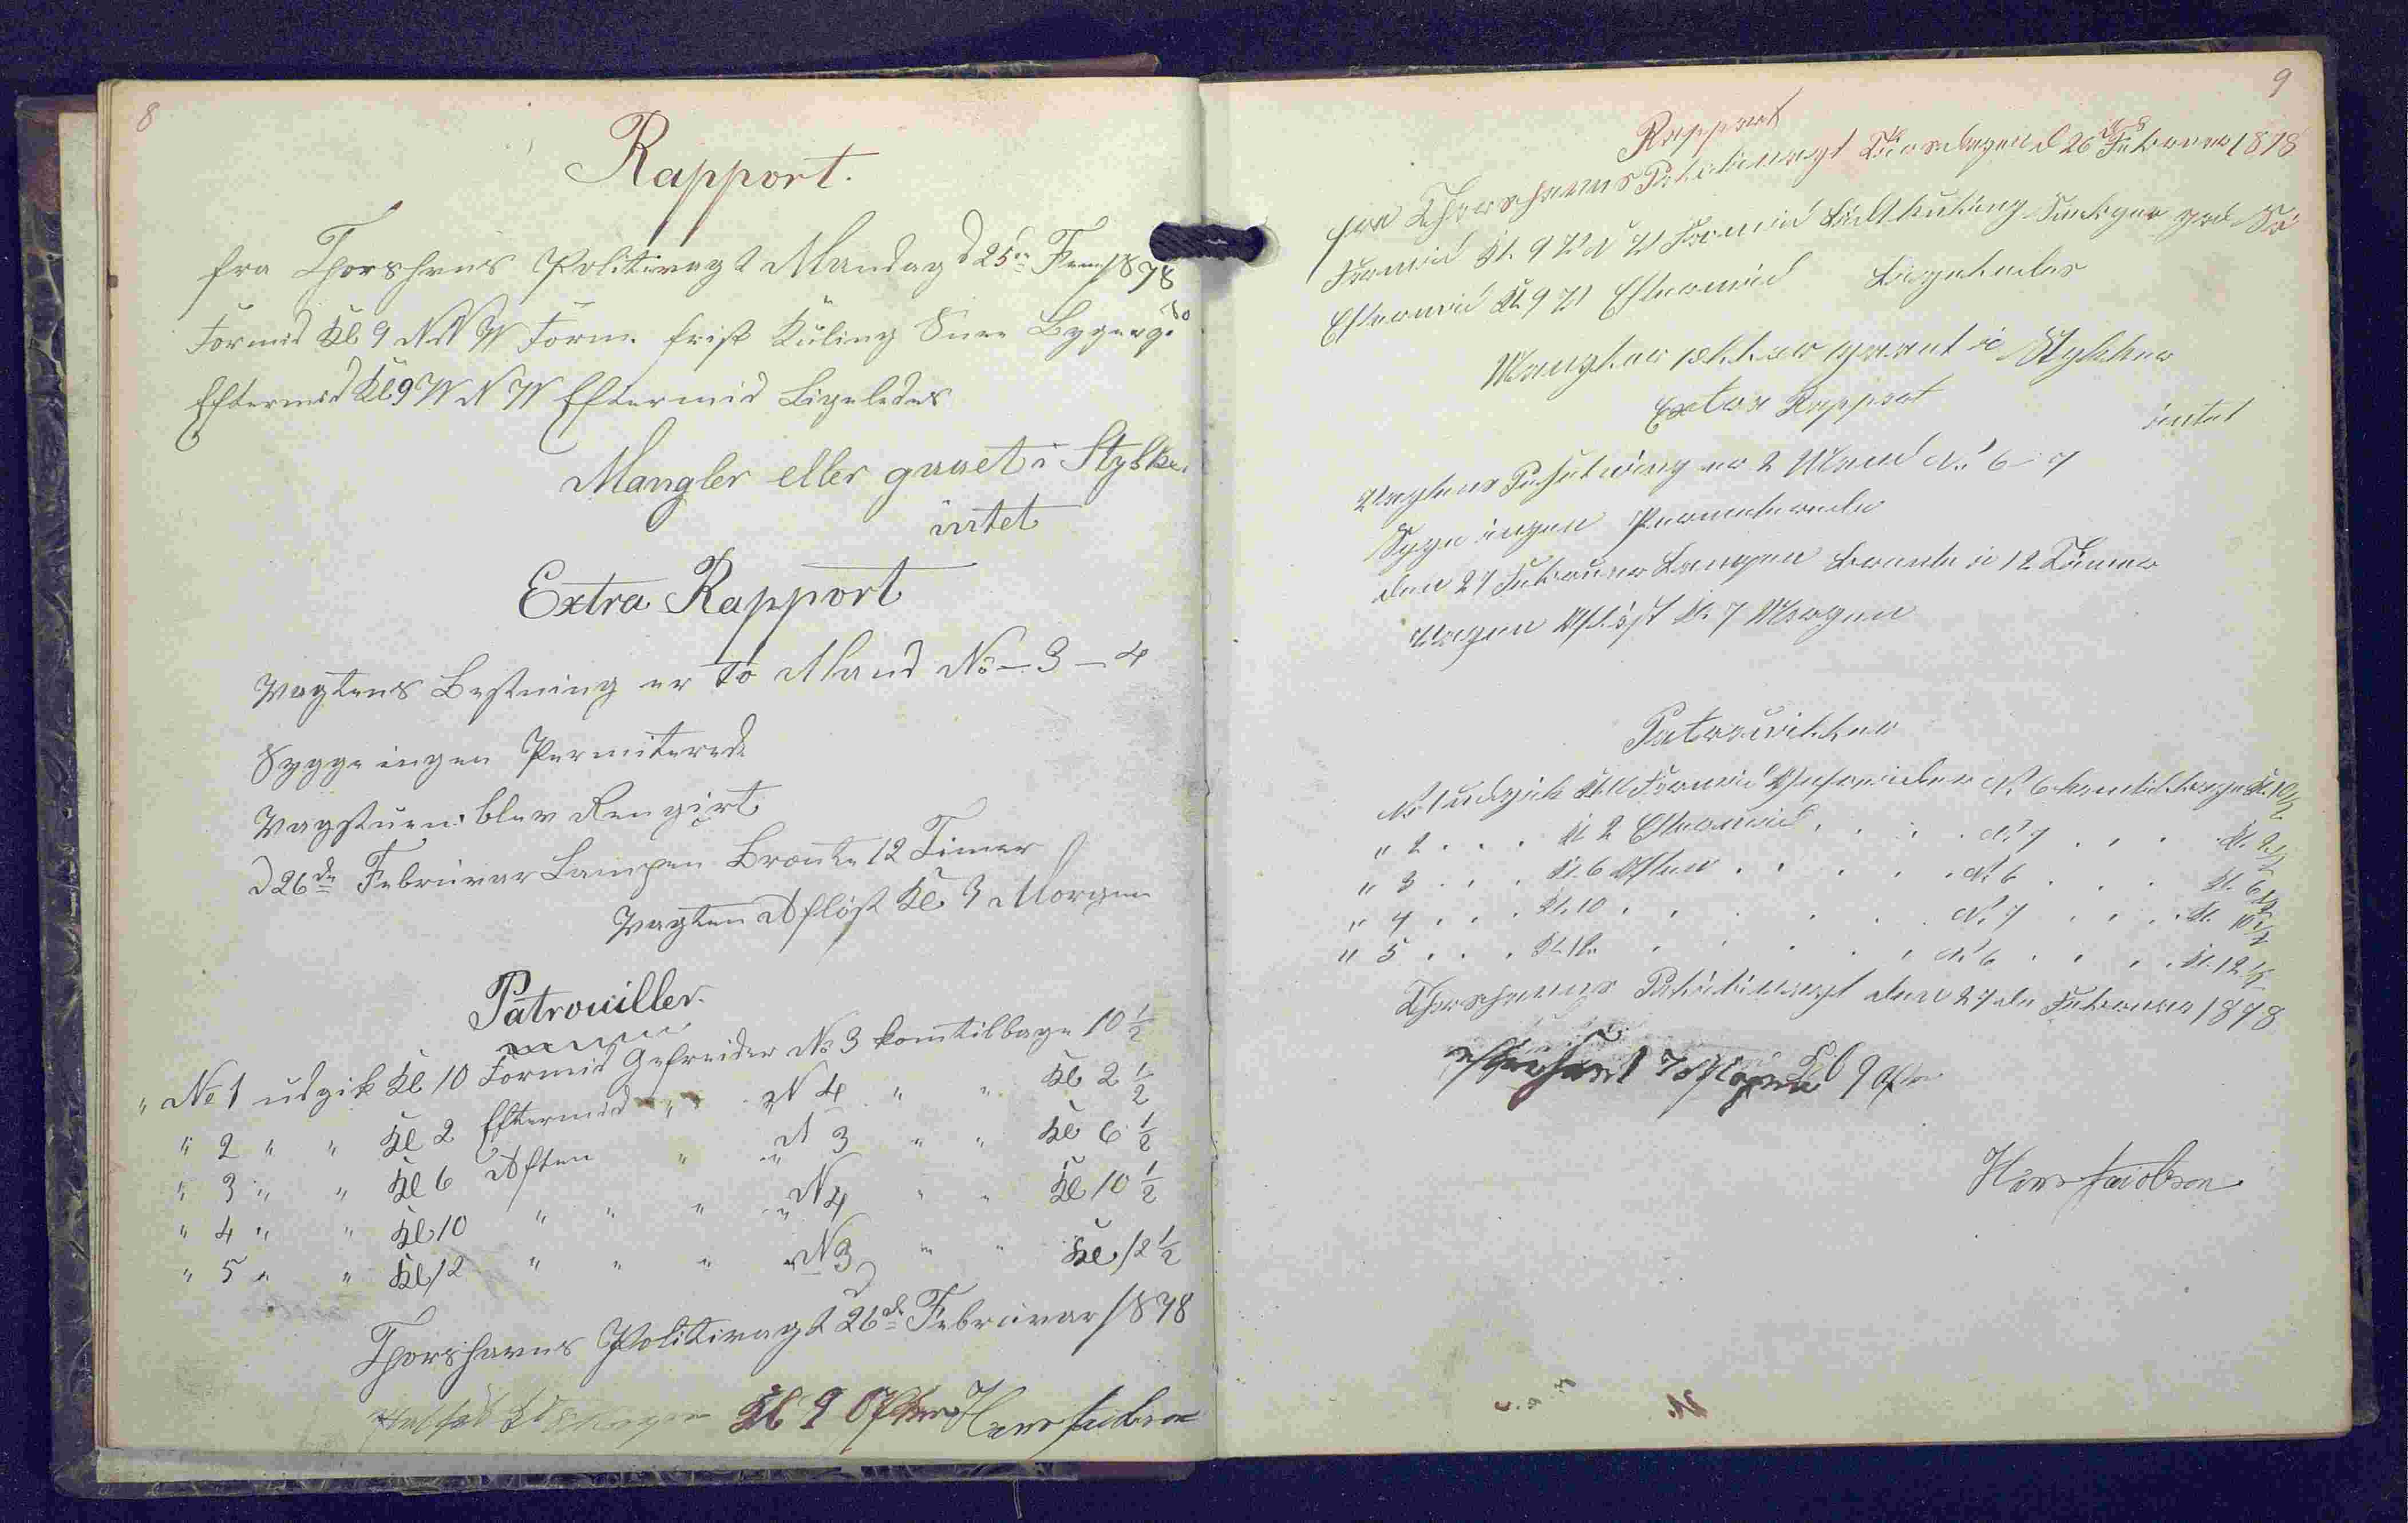 8
Rapport.
fra Thorshvns Politivagt Mandag d 25de Febr 1878
Formid Kl 9 NNW Form. frisk Kuling Snee Byger g. So
Eftermid Kl 9 WNW Eftermid Ligeledes
Mangler eller gaaet i Stykker
intet
Extra Rapport
Vagtens Besetning er to Mand No 3 – 4
Sygge ingen Permiterede
Vagstuen blev Rengjort
d 26de Februar Lampen Brænte 12 Timer
Vagten Afløst Kl 7 Morgen
Patrouiller.
" No 1 udgik Kl 10 Formid Gefreider No 3 kom tilbage 10 1/2
" 2 " " Kl 2 Eftermid " " N 4 " " Kl 2 1/2
" 3 " " Kl 6 Aften " " N 3 " " Kl 6 1/2
" 4 " " Kl 10 " " " " N 4 " " Kl 10 1/2
" 5 " " Kl 12 " " " N 3 " " Kl 12 1/2
Thorshavns Politivagt d 26de Februar 1878
Kl 9 Aften Hans Jacobsen
9
Rapport
fra Thorshavns Politivagt Tirsdagen d 26de Februar 1878
Formid Kl. 9 Formid Kuling god So
Eftermid Kl 9 Eftermid Ligeledes
Mangler eller gaaet i Stykker
intet
Extra Rapport
Vagtens Besetning er 2 Mand No 6 – 7
Syge ingen Permiterede
den 27 Februar Lampen brænte i 12 Timer
Vagten Afløst Kl. 7 Morgen
Patrouiller
No 1 udgik Kl 10 Formid Gefreider No 6 kom tilbage Kl. 10 1/2
" 2 . . . Kl 2 Eftermid . . . . No 7 . . . Kl. 2 1/2
" 3 . . . Kl. 6 Aften . . . . . No 6 . . . Kl. 6 1/2
" 4 . . . Kl. 10 . . . . . No 7 . . . . Kl. 10 1/2
" 5 . . . Kl. 12 . . . . . No 6 . . . . Kl. 12 1/2
Thorshavns Politivagt den 27de Februar 1878
Kl 9 Aften
Hans Jacobsen